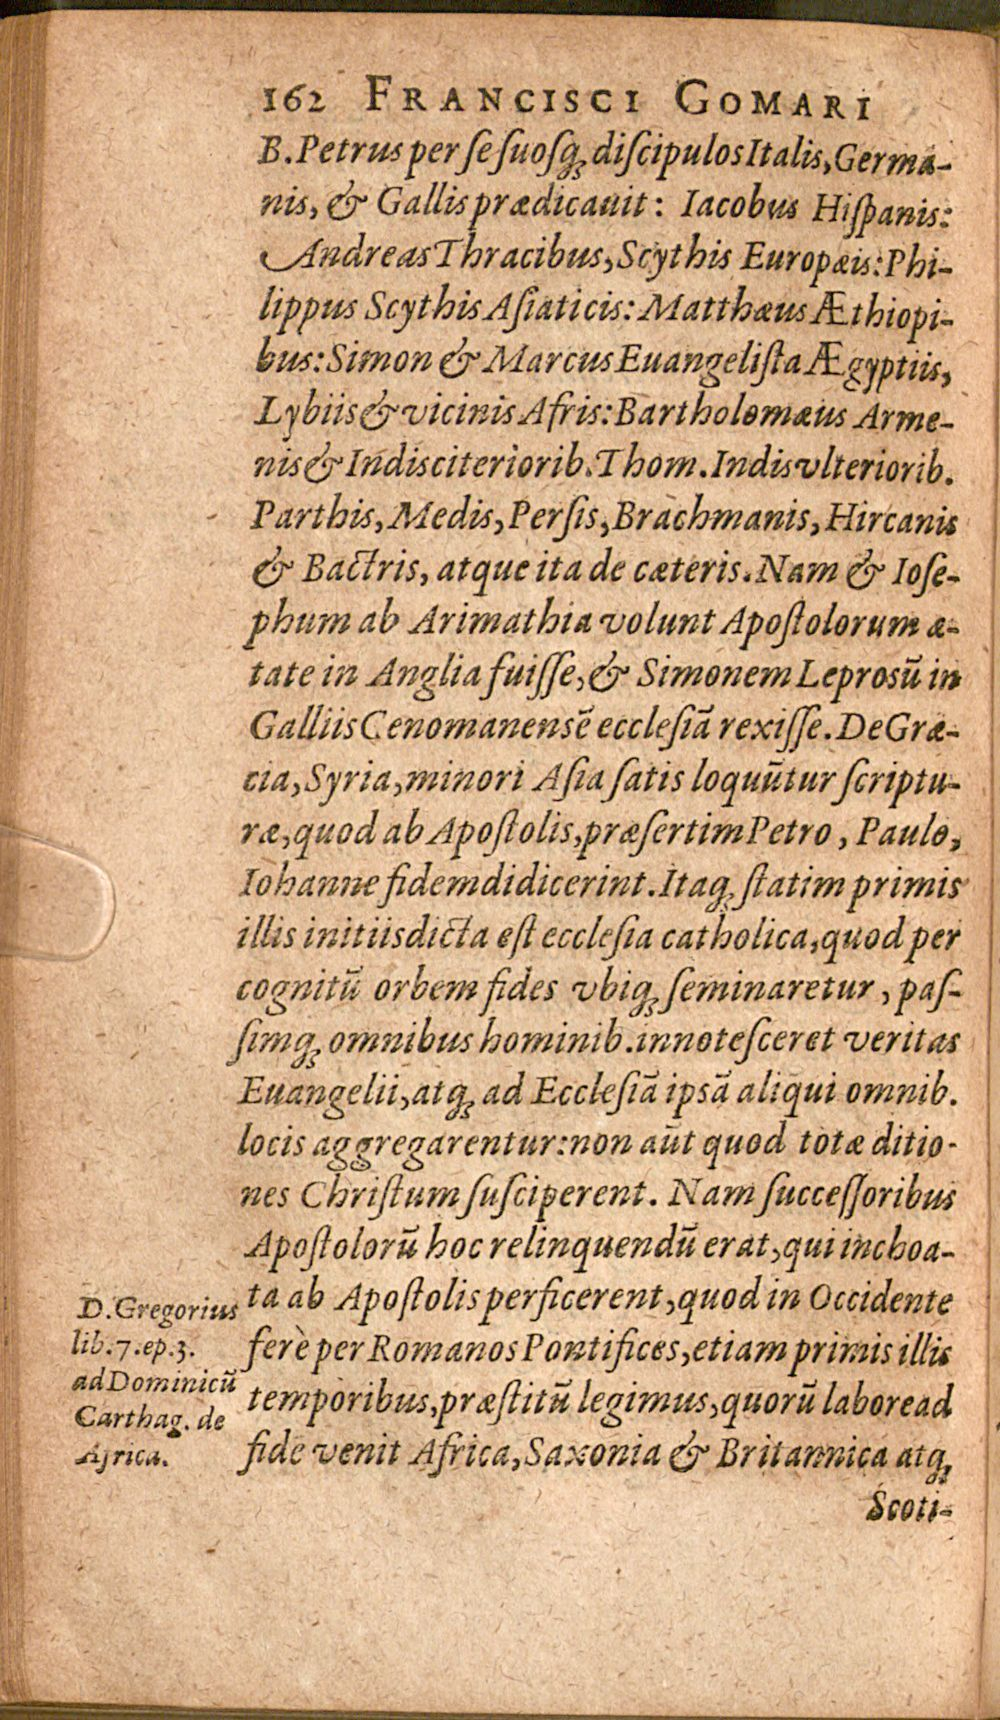 162 FRANCISCI GOMARI
B. Petrus per se suosq́; discipulos Italis, Germa-
nis, & Gallis prædicauit: Iacobus Hiſpanis:
Andreas Thracibus, Scythis Europæis: Phi-
lippus Scythis Aſiaticis: Matthæus Æthiopi-
bus: Simon & Marcus Euangeliſta Ægyptiis,
Lybiis & vicinis Afris: Bartholomæus Arme-
nis & Indis citeriorib. Thom. Indis vlteriorib.
Parthis, Medis, Perſis, Brachmanis, Hircanis
& Bactris, atque ita de cæteris. Nam & Ioſe-
phum ab Arimathia volunt Apoſtolorum æ-
tate in Anglia fuiſſe, & Simonem Leprosū in
Galliis Cenomanensē eccleſiā rexiſſe. De Græ-
cia, Syria, minori Aſia ſatis loquūtur ſcriptu-
ræ, quod ab Apoſtolis, præſertim Petro, Paulo,
Iohanne fidem didicerint. Itaq; ſtatim primis
illis initiis dicta eſt eccleſia catholica, quod per
cognitū orbem fides vbiq; ſeminaretur, paſ-
ſimq; omnibus hominib. innoteſceret veritas
Euangelii, atq; ad Eccleſiā ipsā aliqui omnib.
locis aggregarentur: non aūt quod totæ ditio-
nes Chriſtum ſuſciperent. Nam ſucceſſoribus
Apoſtolorū hoc relinquendū erat, qui inchoa-
ta ab Apoſtolis perficerent, quod in Occidente
ferè per Romanos Pontifices, etiam primis illis
temporibus, præſtitū legimus, quorū labore ad
fidē venit Africa, Saxonia & Britannica atq;
Scoti-
D. Gregorius
lib. 7. ep. 3.
ad Dominicū
Carthag. de
Africa.